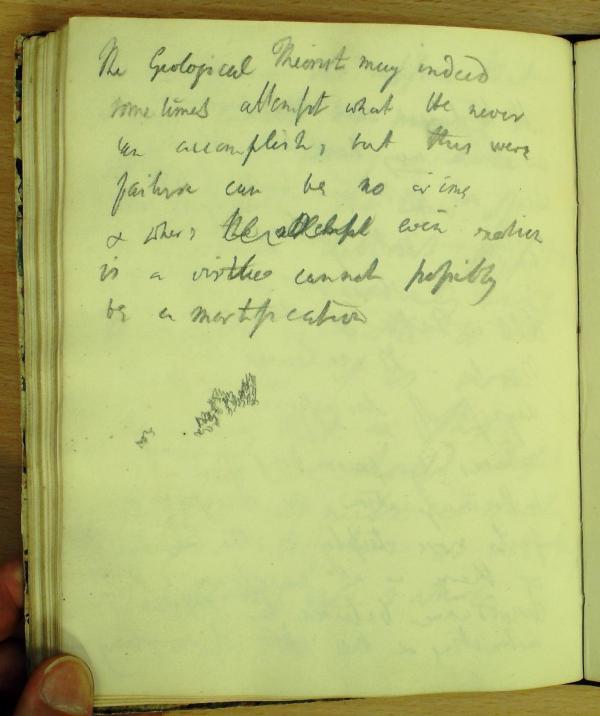 The Geological Theorist may indeed
sometimes attempt what He never
can accomplish, but this were
failure can be no crime
& where the attempt even
is a virtue cannot possibly
be a mortification